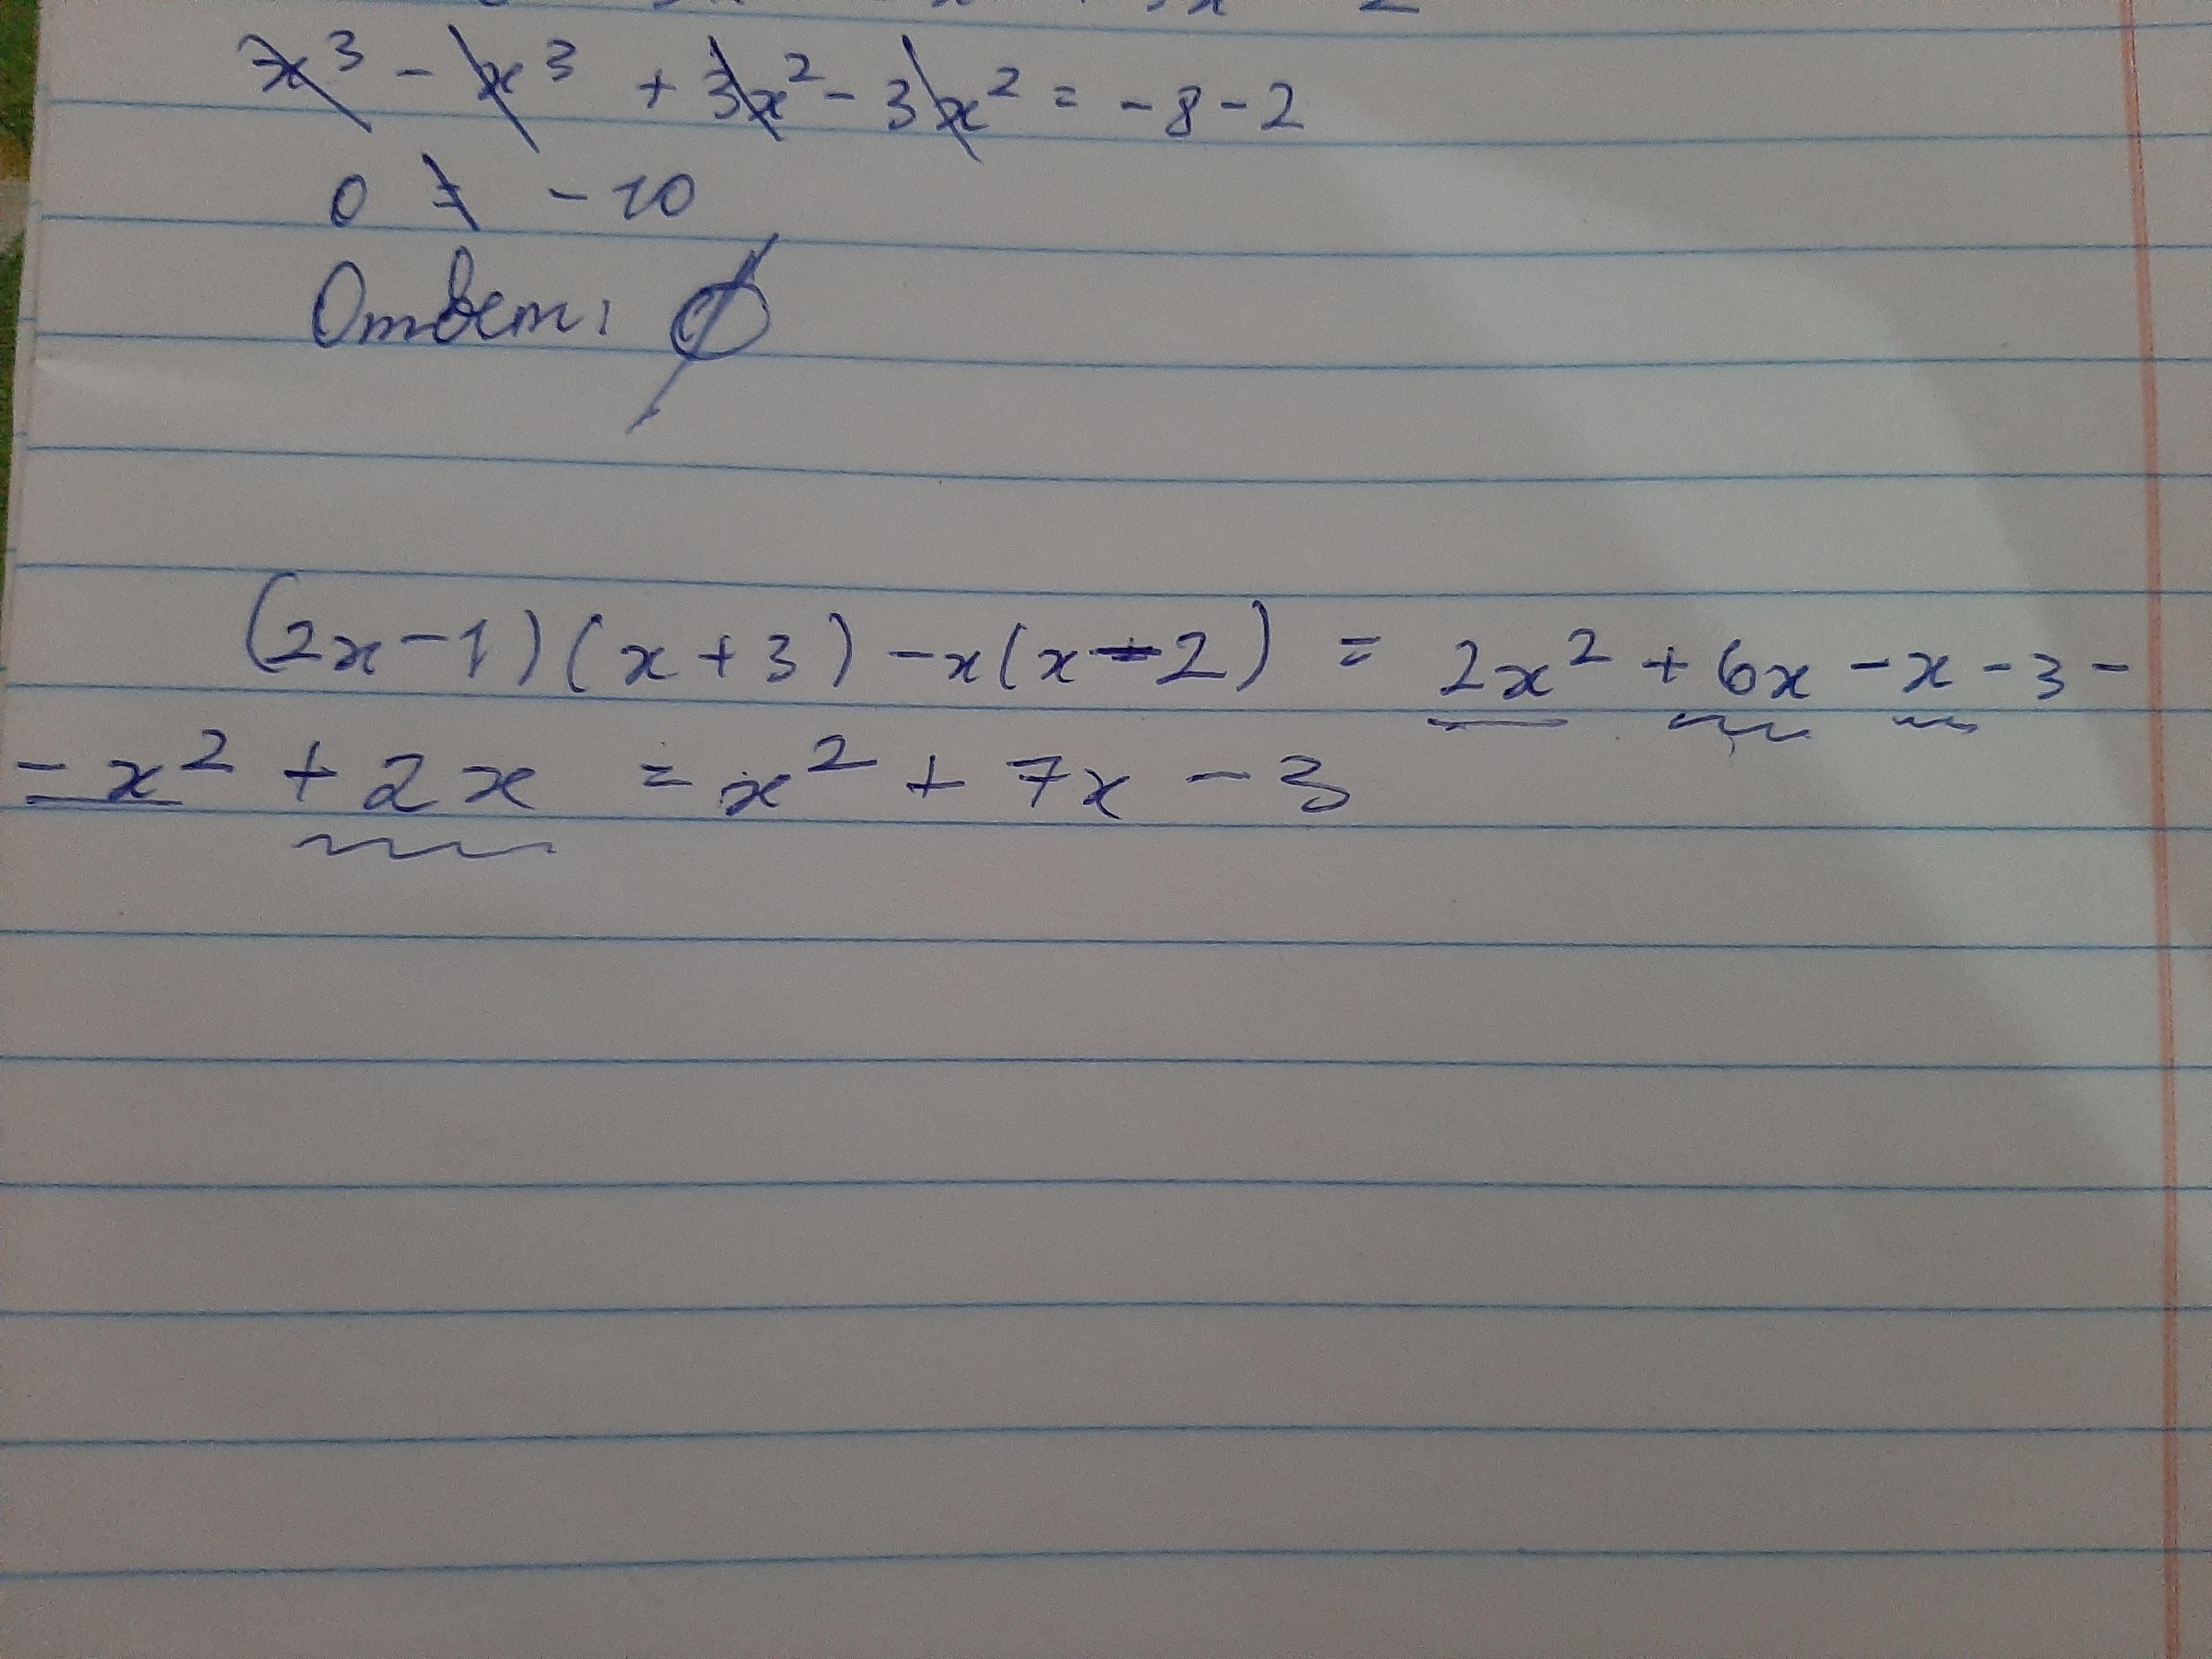 x³ - x³ + 3x² - 3x² = -8-2
0 ≠ -10
Ответ: ∅
(2x-1)(x+3) -x(x-2) = 2x² + 6x -x -3-
-x² + 2x = x² + 7x - 3